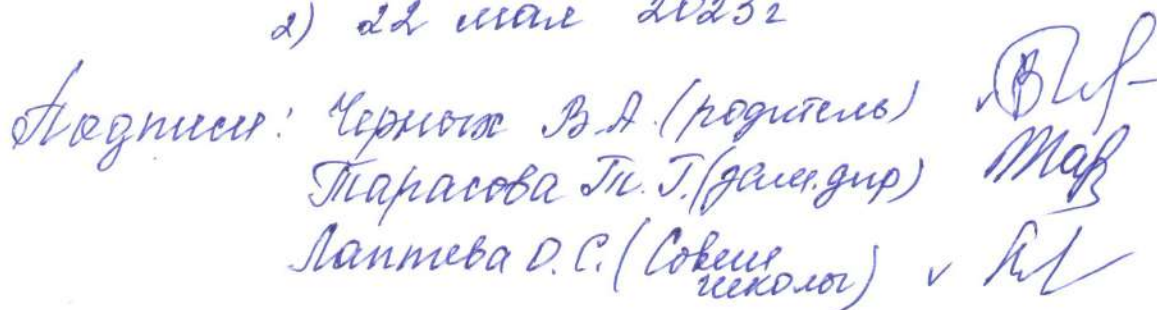 2) 22 мая 2023г
Подписи: Черных В.А. (родитель)
Тарасова Т.Г. (зам.дир)
Лаптева О.С. (Совет школы) v